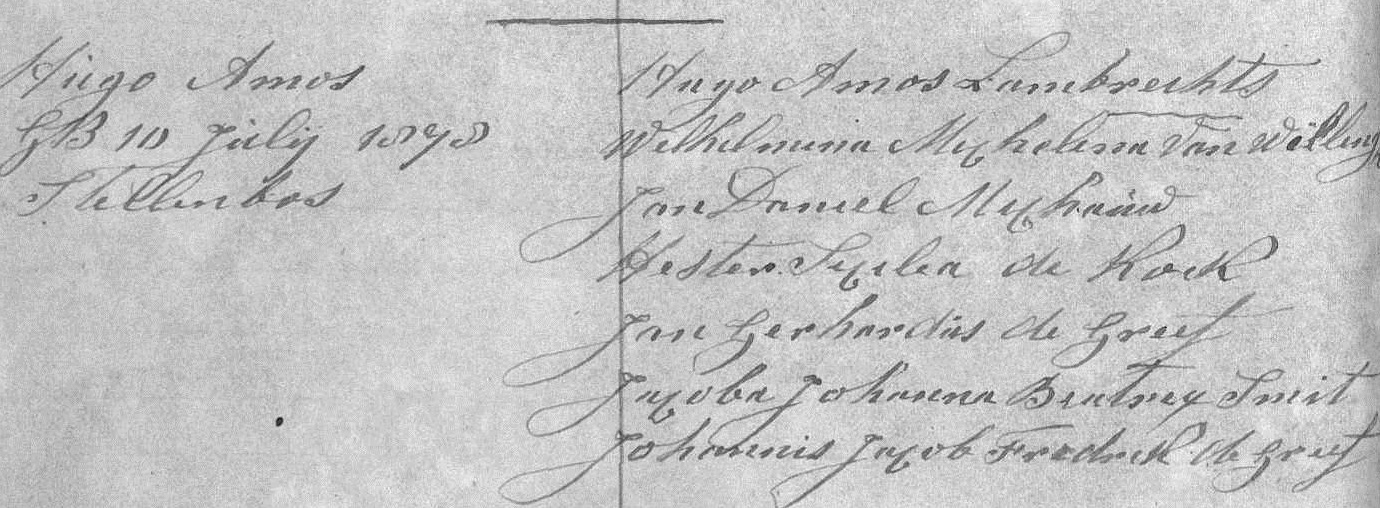 Hugo Amos
GB 10 Julij 1878
Stellenbos
Hugo Amos Lambrechts
Welhelmina Mechelina Van
Jan Daniel
Hester de Kock
Jan Gerhardus de Greef
Jacoba Johanna Beatrex Smit
Johannis Jacob Fredrik de Greef